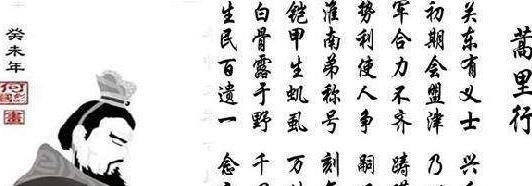 蒿里行
关东有义士 兴
初期会盟津 乃
军合力不齐 踌
势利使人争 嗣
淮南弟称号 刻
铠甲生虮虱 万
白骨露于野 千
生民百遗一 念
癸未年